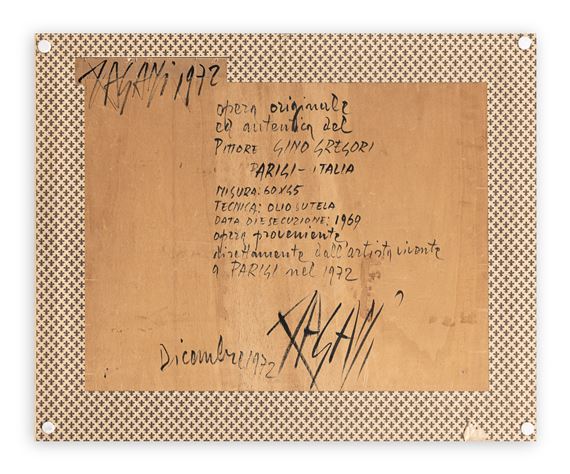 PAGANI 1972
opera originale
ed autentica del
PITTORE GINO GREGORI
PARIGI - ITALIA
MISURA: 60X45
TECNICA: OLIO SU TELA
DATA DI ESECUZIONE: 1969
opera proveniente
direttamente dall'artista vivente
a PARIGI nel 1972
PAGANI
Dicembre 1972